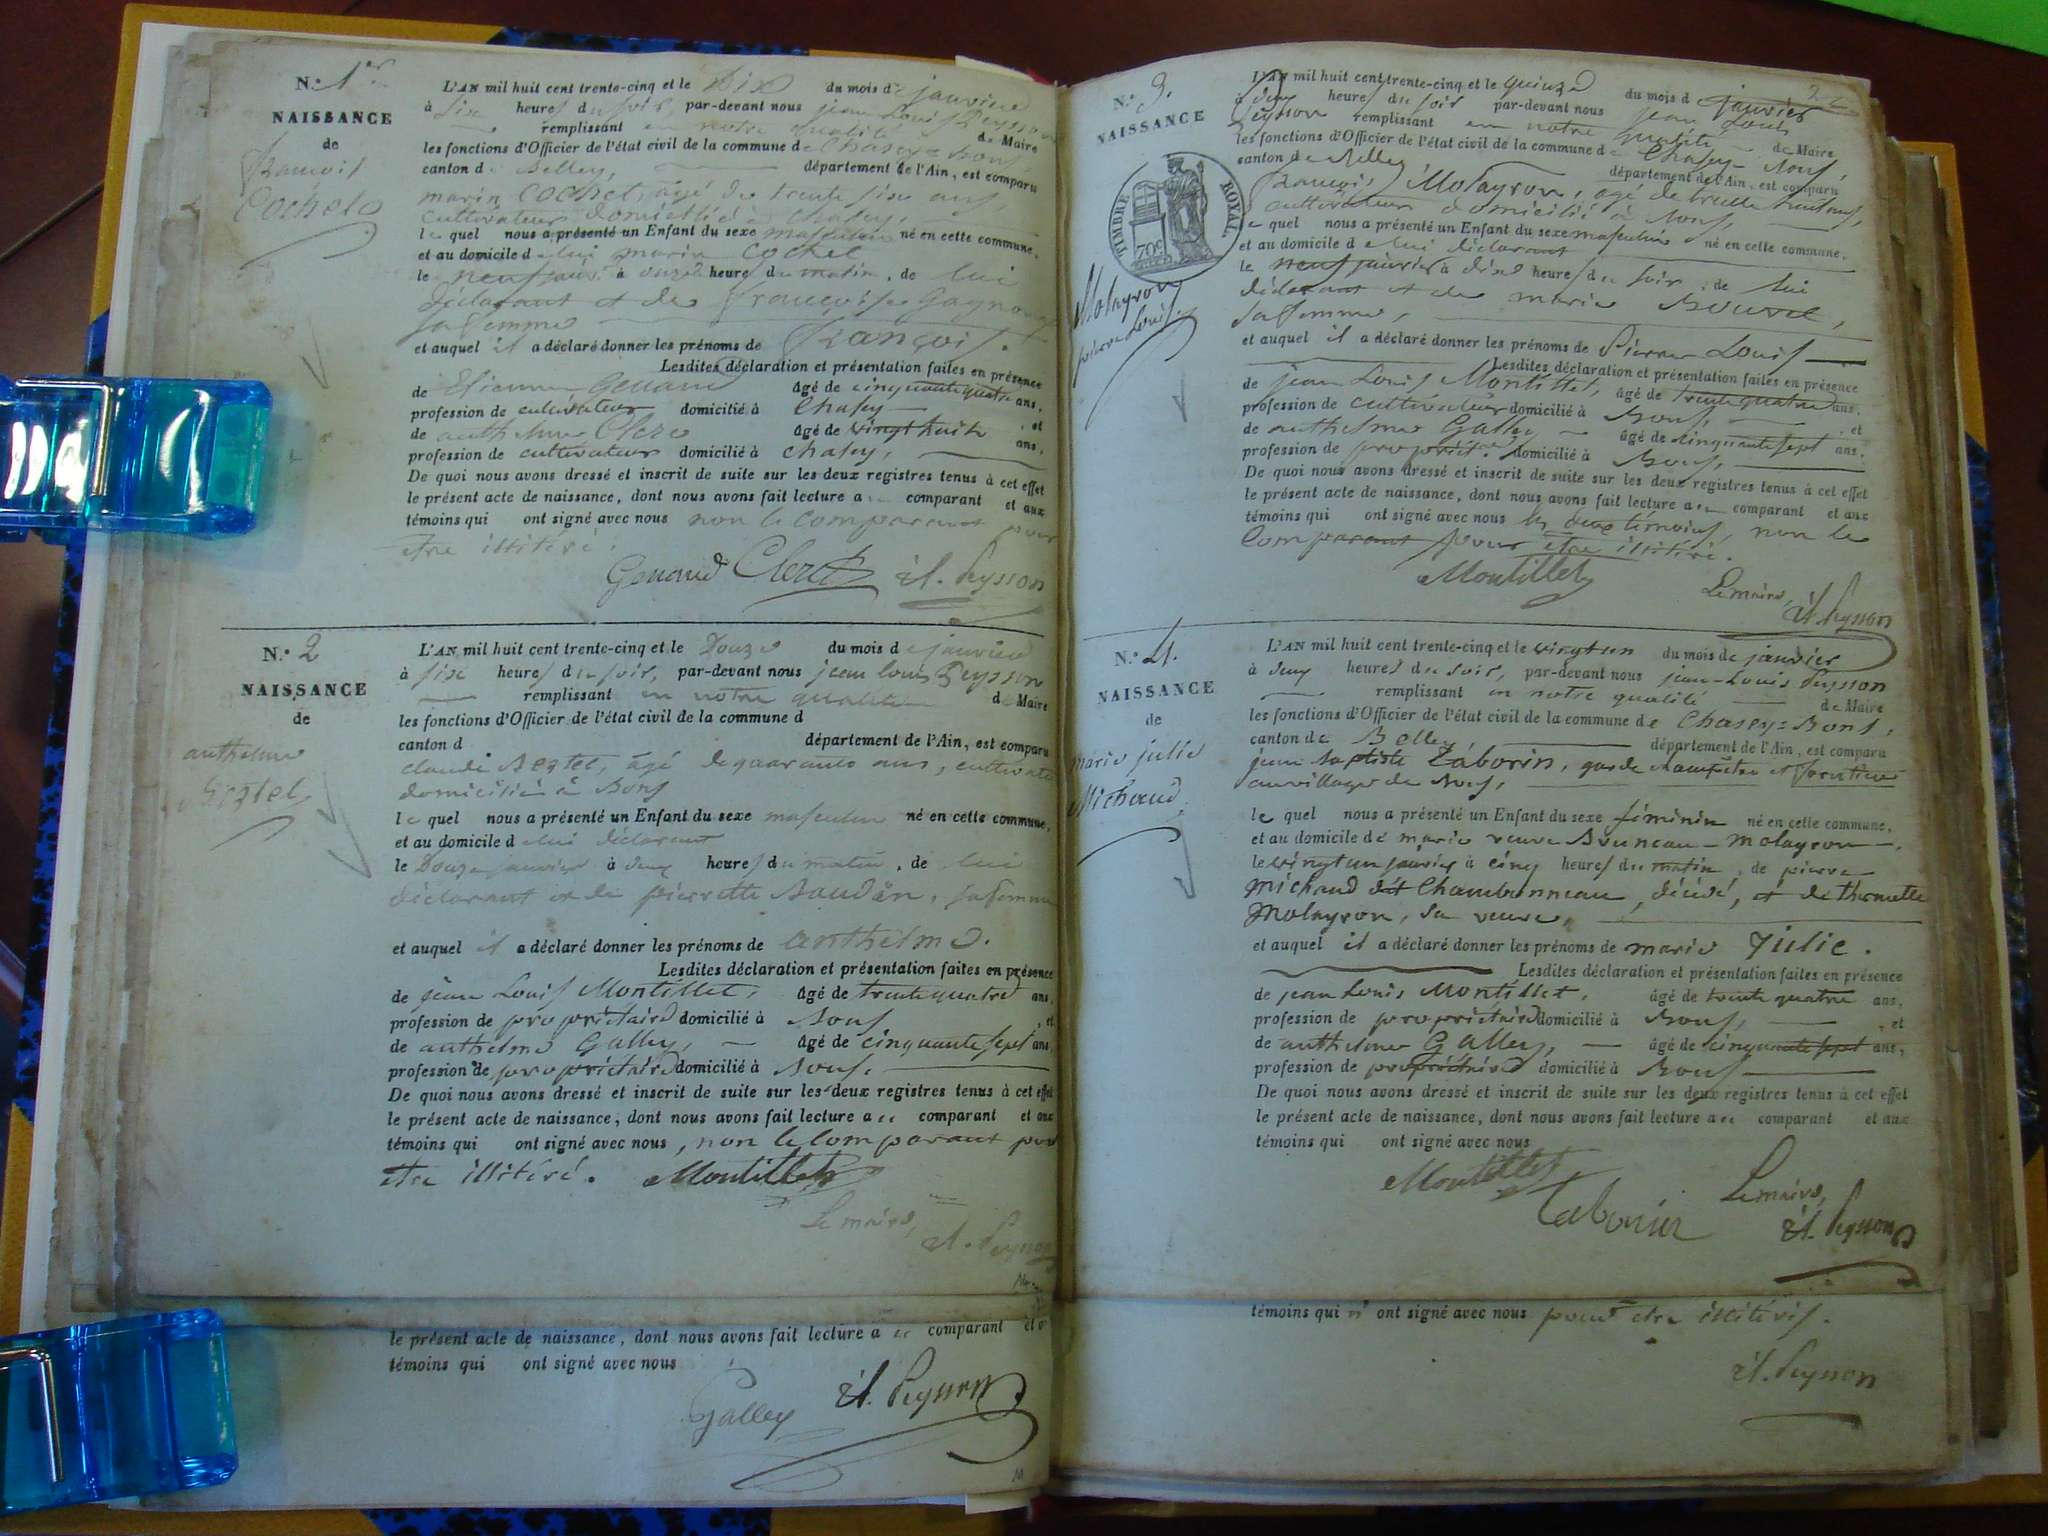 N.º 1er
NAISSANCE
de
François
Cochet
L'AN mil huit cent trente-cinq et le dix du mois de janvier
à six heures du soir, par-devant nous jean Louis Peysson
remplissant en notre qualité de Maire
les fonctions d'Officier de l'état civil de la commune de Chasey=Bons
canton de Belley, département de l'Ain, est comparu
marin Cochet, âgé de trente six ans,
cultivateur domicilié à Chasey,
le quel nous a présenté un Enfant du sexe masculin né en cette commune,
et au domicile de lui marin Cochet
le neuf janv. à onze heures du matin, de lui
déclarant et de Françoise
sa femme
et auquel il a déclaré donner les prénoms de François.
Lesdites déclaration et présentation faites en présence
de Etienne Genand âgé de cinquante quatre ans,
profession de cultivateur domicilié à Chasey, et
de anthelme Clerc âgé de vingt huit ans,
profession de cultivateur domicilié à Chasey,
De quoi nous avons dressé et inscrit de suite sur les deux registres tenus à cet effet
le présent acte de naissance, dont nous avons fait lecture au comparant et aux
témoins qui ont signé avec nous non le comparant pour
etre illitéré.
Genand Clerc Peysson
N.º 2
NAISSANCE
de
anthelme
Bertet
L'AN mil huit cent trente-cinq et le Douze du mois de janvier
à six heures du soir, par-devant nous jean louis Peysson
remplissant en notre qualité de Maire
les fonctions d'Officier de l'état civil de la commune d
canton d département de l'Ain, est comparu
claude Bertet, âgé de quarante ans, cultivate
domicilié à Bons
le quel nous a présenté un Enfant du sexe masculin né en cette commune,
et au domicile de lui déclarant
le Douze janvier à deux heures du matin, de lui
déclarant et de pierrette Baudin, sa femme
et auquel il a déclaré donner les prénoms de anthelme.
Lesdites déclaration et présentation faites en présence
de jean Louis Montillet, âgé de trente quatre ans,
profession de propriétaire domicilié à Bons, et
de anthelme Galley, âgé de cinquante sept ans,
profession de propriétaire domicilié à Bons,
De quoi nous avons dressé et inscrit de suite sur les deux registres tenus à cet effet
le présent acte de naissance, dont nous avons fait lecture au comparant et aux
témoins qui ont signé avec nous, non le comparant pour
etre illitéré. Montillet
Le maire,
Peysson
le présent acte de naissance, dont nous avons fait lecture au comparant et
témoins qui ont signé avec nous
Galley Peysson
N.º 3.
NAISSANCE
TIMBRE ROYAL
70c
Molayron
pierre Louis
L'AN mil huit cent trente-cinq et le quinze du mois de janvier
à deux heures du soir par-devant nous jean Louis
Peysson remplissant en notre qualité de Maire
les fonctions d'Officier de l'état civil de la commune de Chasey-Bons,
canton de Belley département de l'Ain, est comparu
François Molayron, âgé de trente huit ans,
cultivateur domicilié à Bons,
le quel nous a présenté un Enfant du sexe masculin né en cette commune,
et au domicile de lui déclarant
le neuf janvier à dix heures du soir, de lui
déclarant et de marie Bouvet,
sa femme,
et auquel il a déclaré donner les prénoms de Pierre Louis
Lesdites déclaration et présentation faites en présence
de jean Louis Montillet, âgé de trente quatre ans,
profession de cultivateur domicilié à Bons, et
de anthelme Galley âgé de cinquante sept ans,
profession de propriét.e domicilié à Bons,
De quoi nous avons dressé et inscrit de suite sur les deux registres tenus à cet effet
le présent acte de naissance, dont nous avons fait lecture au comparant et aux
témoins qui ont signé avec nous les deux témoins, non le
comparant pour être illitéré.
Montillet
Le maire,
Peysson
N.º 4.
NAISSANCE
de
marie julie
Michaud
L'AN mil huit cent trente-cinq et le vingt un du mois de janvier
à deux heures du soir, par-devant nous jean-Louis Peysson
remplissant en notre qualité de Maire
les fonctions d'Officier de l'état civil de la commune de Chasey=Bons,
canton de Belley département de l'Ain, est comparu
jean baptiste Taborin, garde champêtre et forestier
au village de Bons,
le quel nous a présenté un Enfant du sexe féminin né en cette commune,
et au domicile de marie veuve Bruneau-molayron
le vingt un janvier à cinq heures du matin, de pierre
michaud dit Chambonneau, décédé, et de thermette
Molayron, sa veuve,
et auquel il a déclaré donner les prénoms de marie Julie.
Lesdites déclaration et présentation faites en présence
de jean Louis Montillet, âgé de trente quatre ans,
profession de propriétaire domicilié à Bons, et
de anthelme Galley, âgé de cinquante sept ans,
profession de propriétaire domicilié à Bons
De quoi nous avons dressé et inscrit de suite sur les deux registres tenus à cet effet
le présent acte de naissance, dont nous avons fait lecture au comparant et aux
témoins qui ont signé avec nous
Montillet
Taborin
Le maire,
Peysson
témoins qui n' ont signé avec nous pour etre illitérés.
Peysson